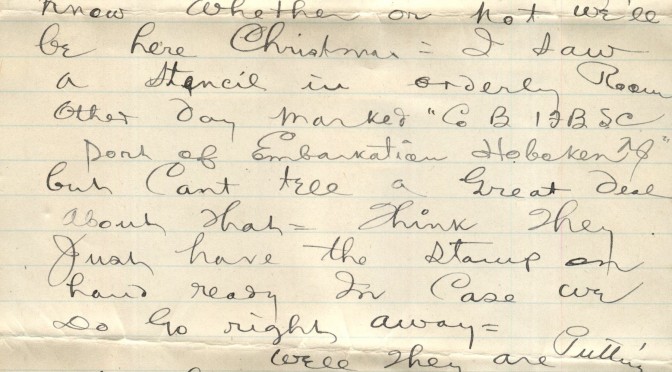 know whether or not we'll
be here Christmas = I saw
a Stencil in orderly Room
Other Day marked "Co B 13 B S C
Port of Embarkation Hoboken NJ"
but Cant tell a Great Deal
About that = Think They
Just have the Stamp on
hand ready In Case we
Do Go right away =
we'll They are Puttin